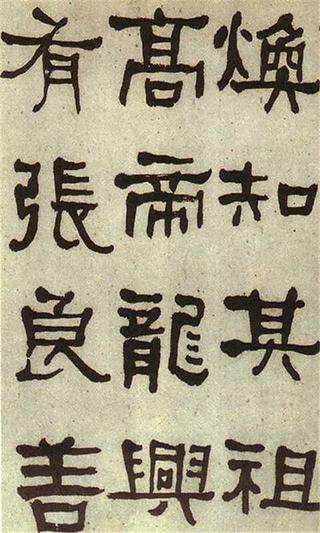 煥知其祖
高帝龍興
有張良善